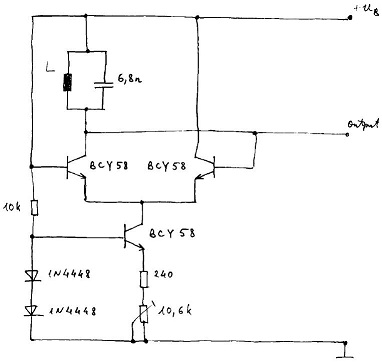 +UB
L
6,8n
output
BCY58
BCY58
10k
BCY58
1N4448
240
1N4448
10,6k